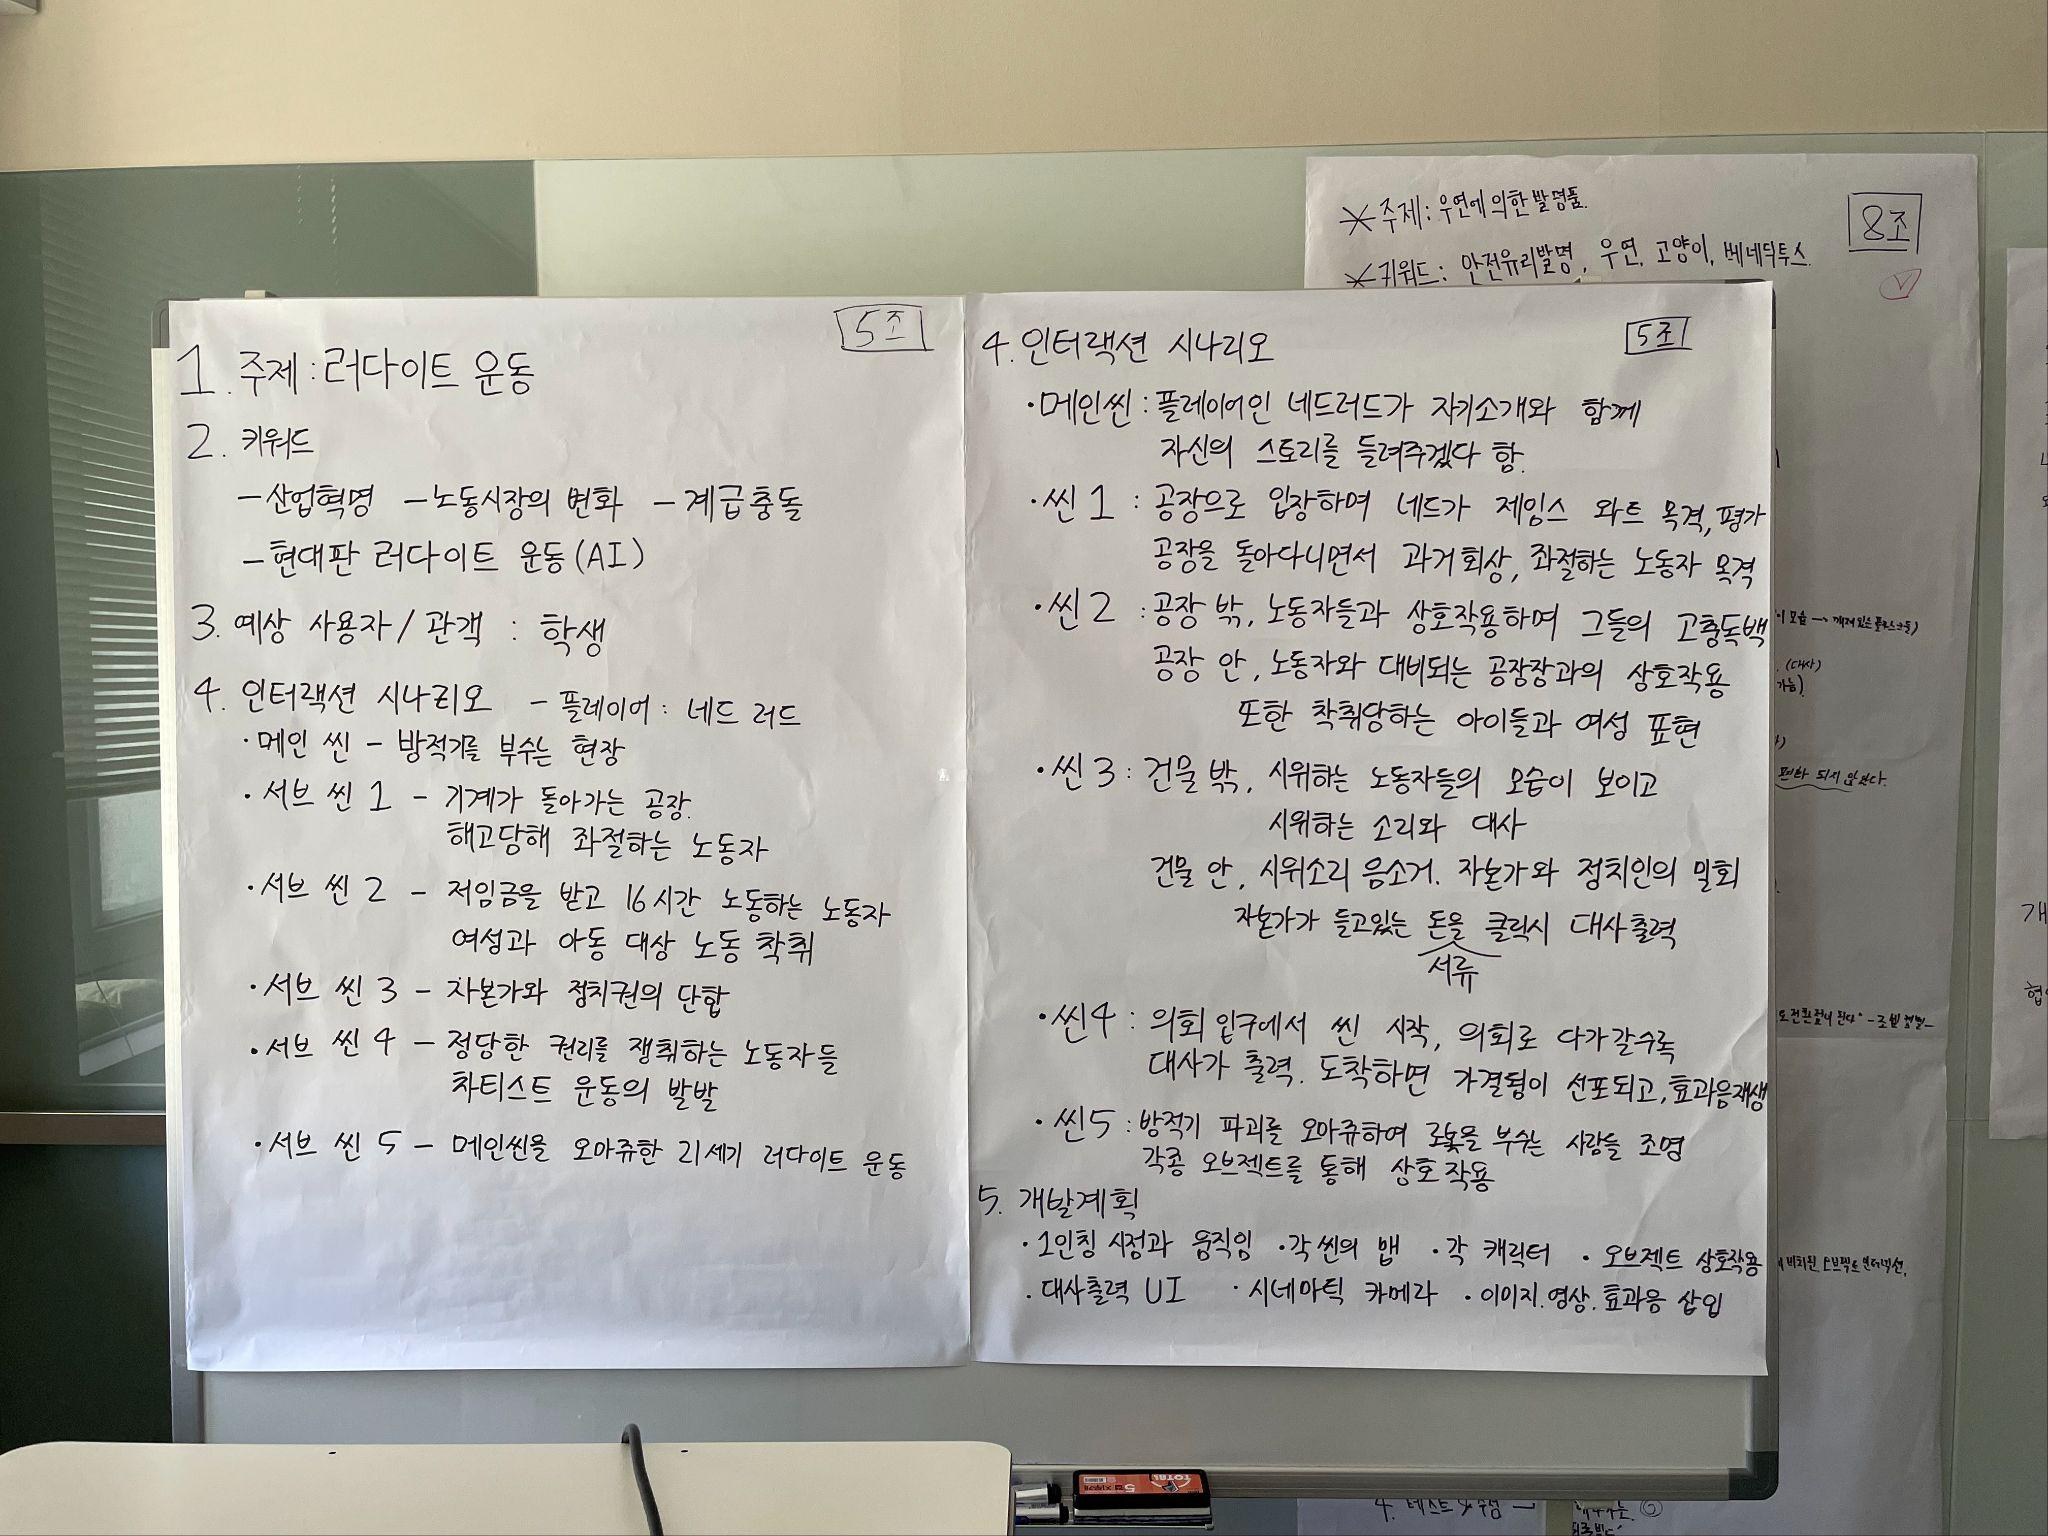 5조
1. 주제 : 러다이트 운동
2. 키워드
- 산업혁명 - 노동시장의 변화 - 계급충돌
- 현대판 러다이트 운동(AI)
3. 예상 사용자 / 관객 : 학생
4. 인터랙션 시나리오 - 플레이어 : 네드 러드
· 메인 씬 - 방적기를 부수는 현장
· 서브 씬 1 - 기계가 돌아가는 공장.
해고당해 좌절하는 노동자
· 서브 씬 2 - 저임금을 받고 16시간 노동하는 노동자
여성과 아동 대상 노동 착취
· 서브 씬 3 - 자본가와 정치권의 단합
· 서브 씬 4 - 정당한 권리를 쟁취하는 노동자들
차티스트 운동의 발발
· 서브 씬 5 - 메인씬을 오마쥬한 21세기 러다이트 운동
5조
4. 인터랙션 시나리오
· 메인씬 : 플레이어인 네드러드가 자기소개와 함께
자신의 스토리를 들려주겠다 함.
· 씬 1 : 공장으로 입장하며 네드가 제임스 와트 목격, 평가
공장을 돌아다니면서 과거회상, 좌절하는 노동자 목격
· 씬 2 : 공장 밖, 노동자들과 상호작용하며 그들의 고충독백
공장 안, 노동자와 대비되는 공장장과의 상호작용
또한 착취당하는 아이들과 여성 표현
· 씬 3 : 건물 밖, 시위하는 노동자들의 모습이 보이고
시위하는 소리와 대사
건물 안, 시위소리 음소거. 자본가와 정치인의 밀회
자본가가 들고있는 돈을 클릭시 대사출력
서류
· 씬4 : 의회 입구에서 씬 시작, 의회로 다가갈수록
대사가 출력. 도착하면 가결됨이 선포되고, 효과음재생
· 씬5 : 방적기 파괴를 오마쥬하여 로봇을 부수는 사람들 조명
각종 오브젝트를 통해 상호작용
5. 개발계획
· 1인칭 시점과 움직임 · 각 씬의 맵 · 각 캐릭터 · 오브젝트 상호작용
· 대사출력 UI · 시네마틱 카메라 · 이미지.영상.효과음 삽입
8조
* 주제 : 우연에 의한 발명품.
* 키워드 : 안전유리발명, 우연, 고양이, 베네딕투스.
(대사)
가능).
되지 않았다.
4. 테스트 & 수정
TOTAL